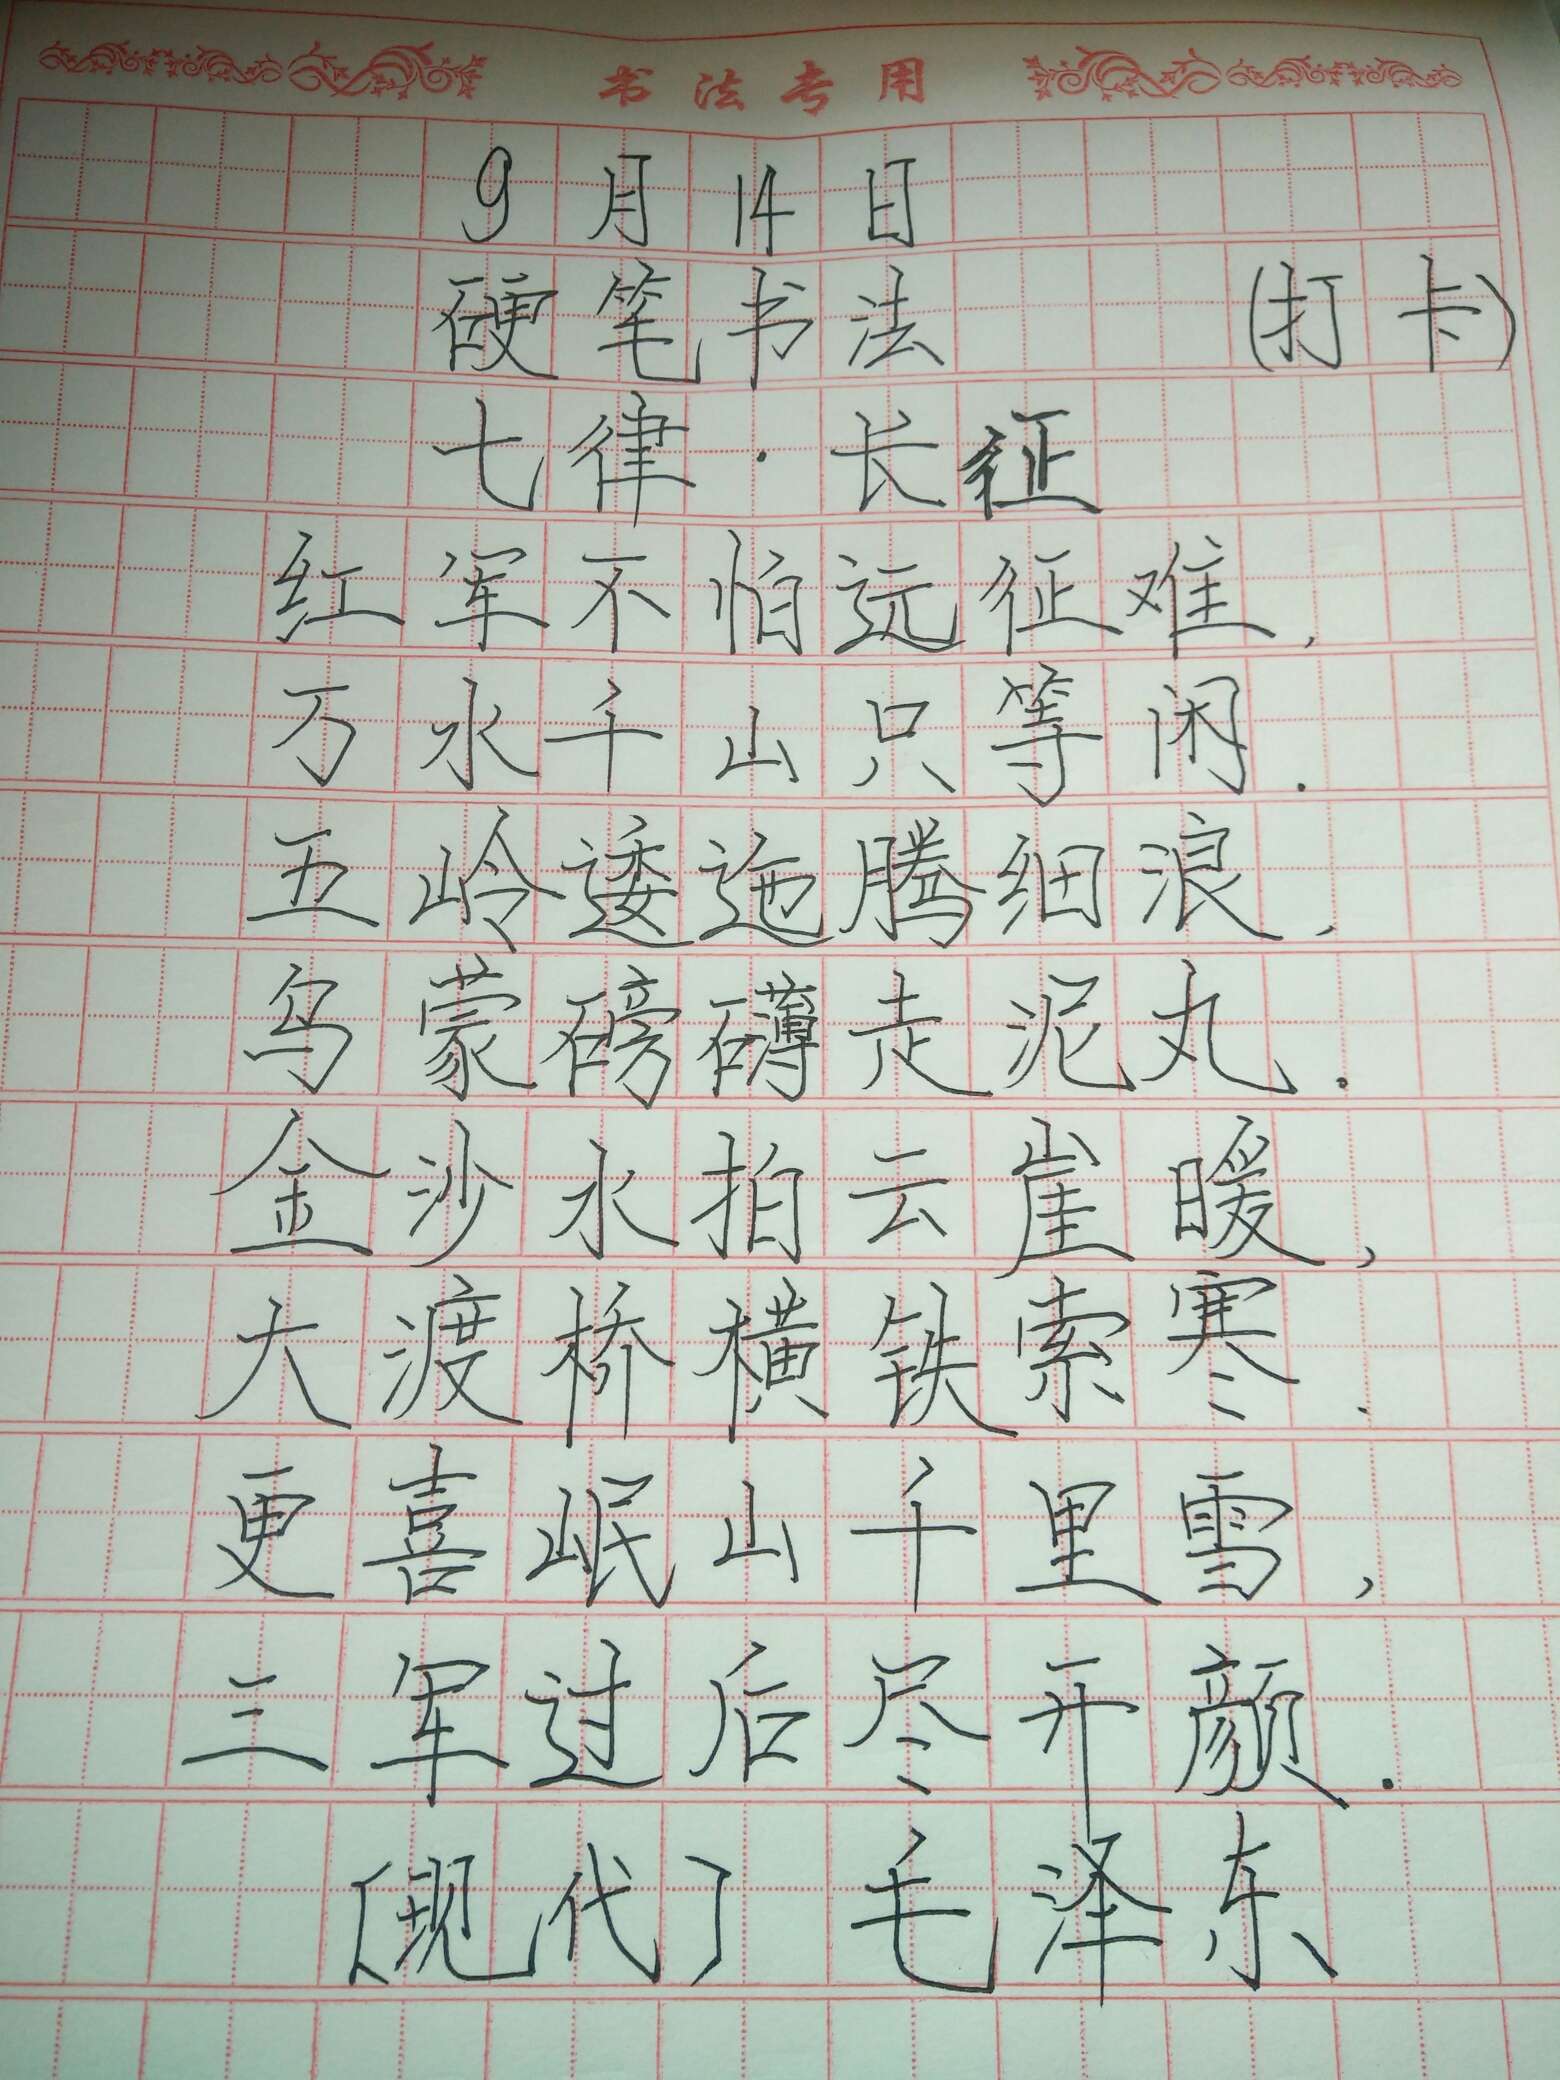 书法专用
9月14日
硬笔书法 (打卡)
七律·长征
红军不怕远征难,
万水千山只等闲.
五岭逶迤腾细浪,
乌蒙磅礴走泥丸.
金沙水拍云崖暖,
大渡桥横铁索寒.
更喜岷山千里雪,
三军过后尽开颜.
〔现代〕毛泽东